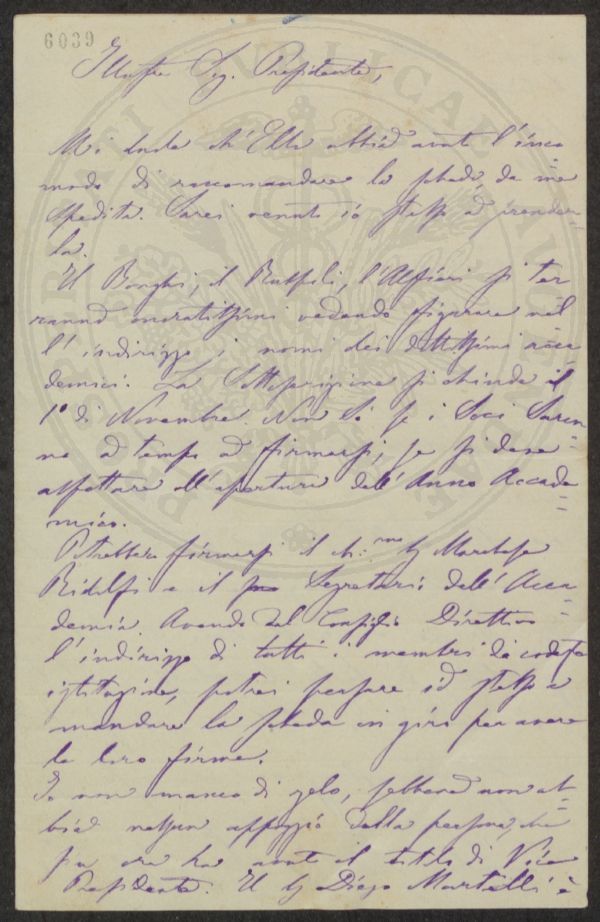 6039
Illustre Sig. Presidente,
Mi duole ch'Ella abbia avuto l'inco
modo di raccomandare la scheda da me
spedita. Sarei venuto io stesso a prender-
la.
Il Bonghi, il Ruspoli, l'Alfieri si ter
ranno onoratissimi vedendo figurare nel
l'indirizzo i nomi dei dottissimi acca
demici. La Sottoscrizione si chiude il
1º di Novembre. Non so se i Soci saran-
no a tempo a firmarsi, se si deve
aspettare all'apertura dell'Anno Accade
mico.
Potrebbero firmarsi il ch.mo Sg Marchese
Ridolfi e il Segretario dell'Acca-
demia. Avendo dal Consiglio Direttivo
l'indirizzo di tutti i membri di codesta
istituzione, potrei pensare io stesso a
mandare la scheda in giro per avere
le loro firme.
Io non manco di zelo, sebbene non ab-
bia nessun appoggio dalla persona, che
fin ora ha avuto il titolo di Vice
Presidente. Il Sg Diego Martelli è